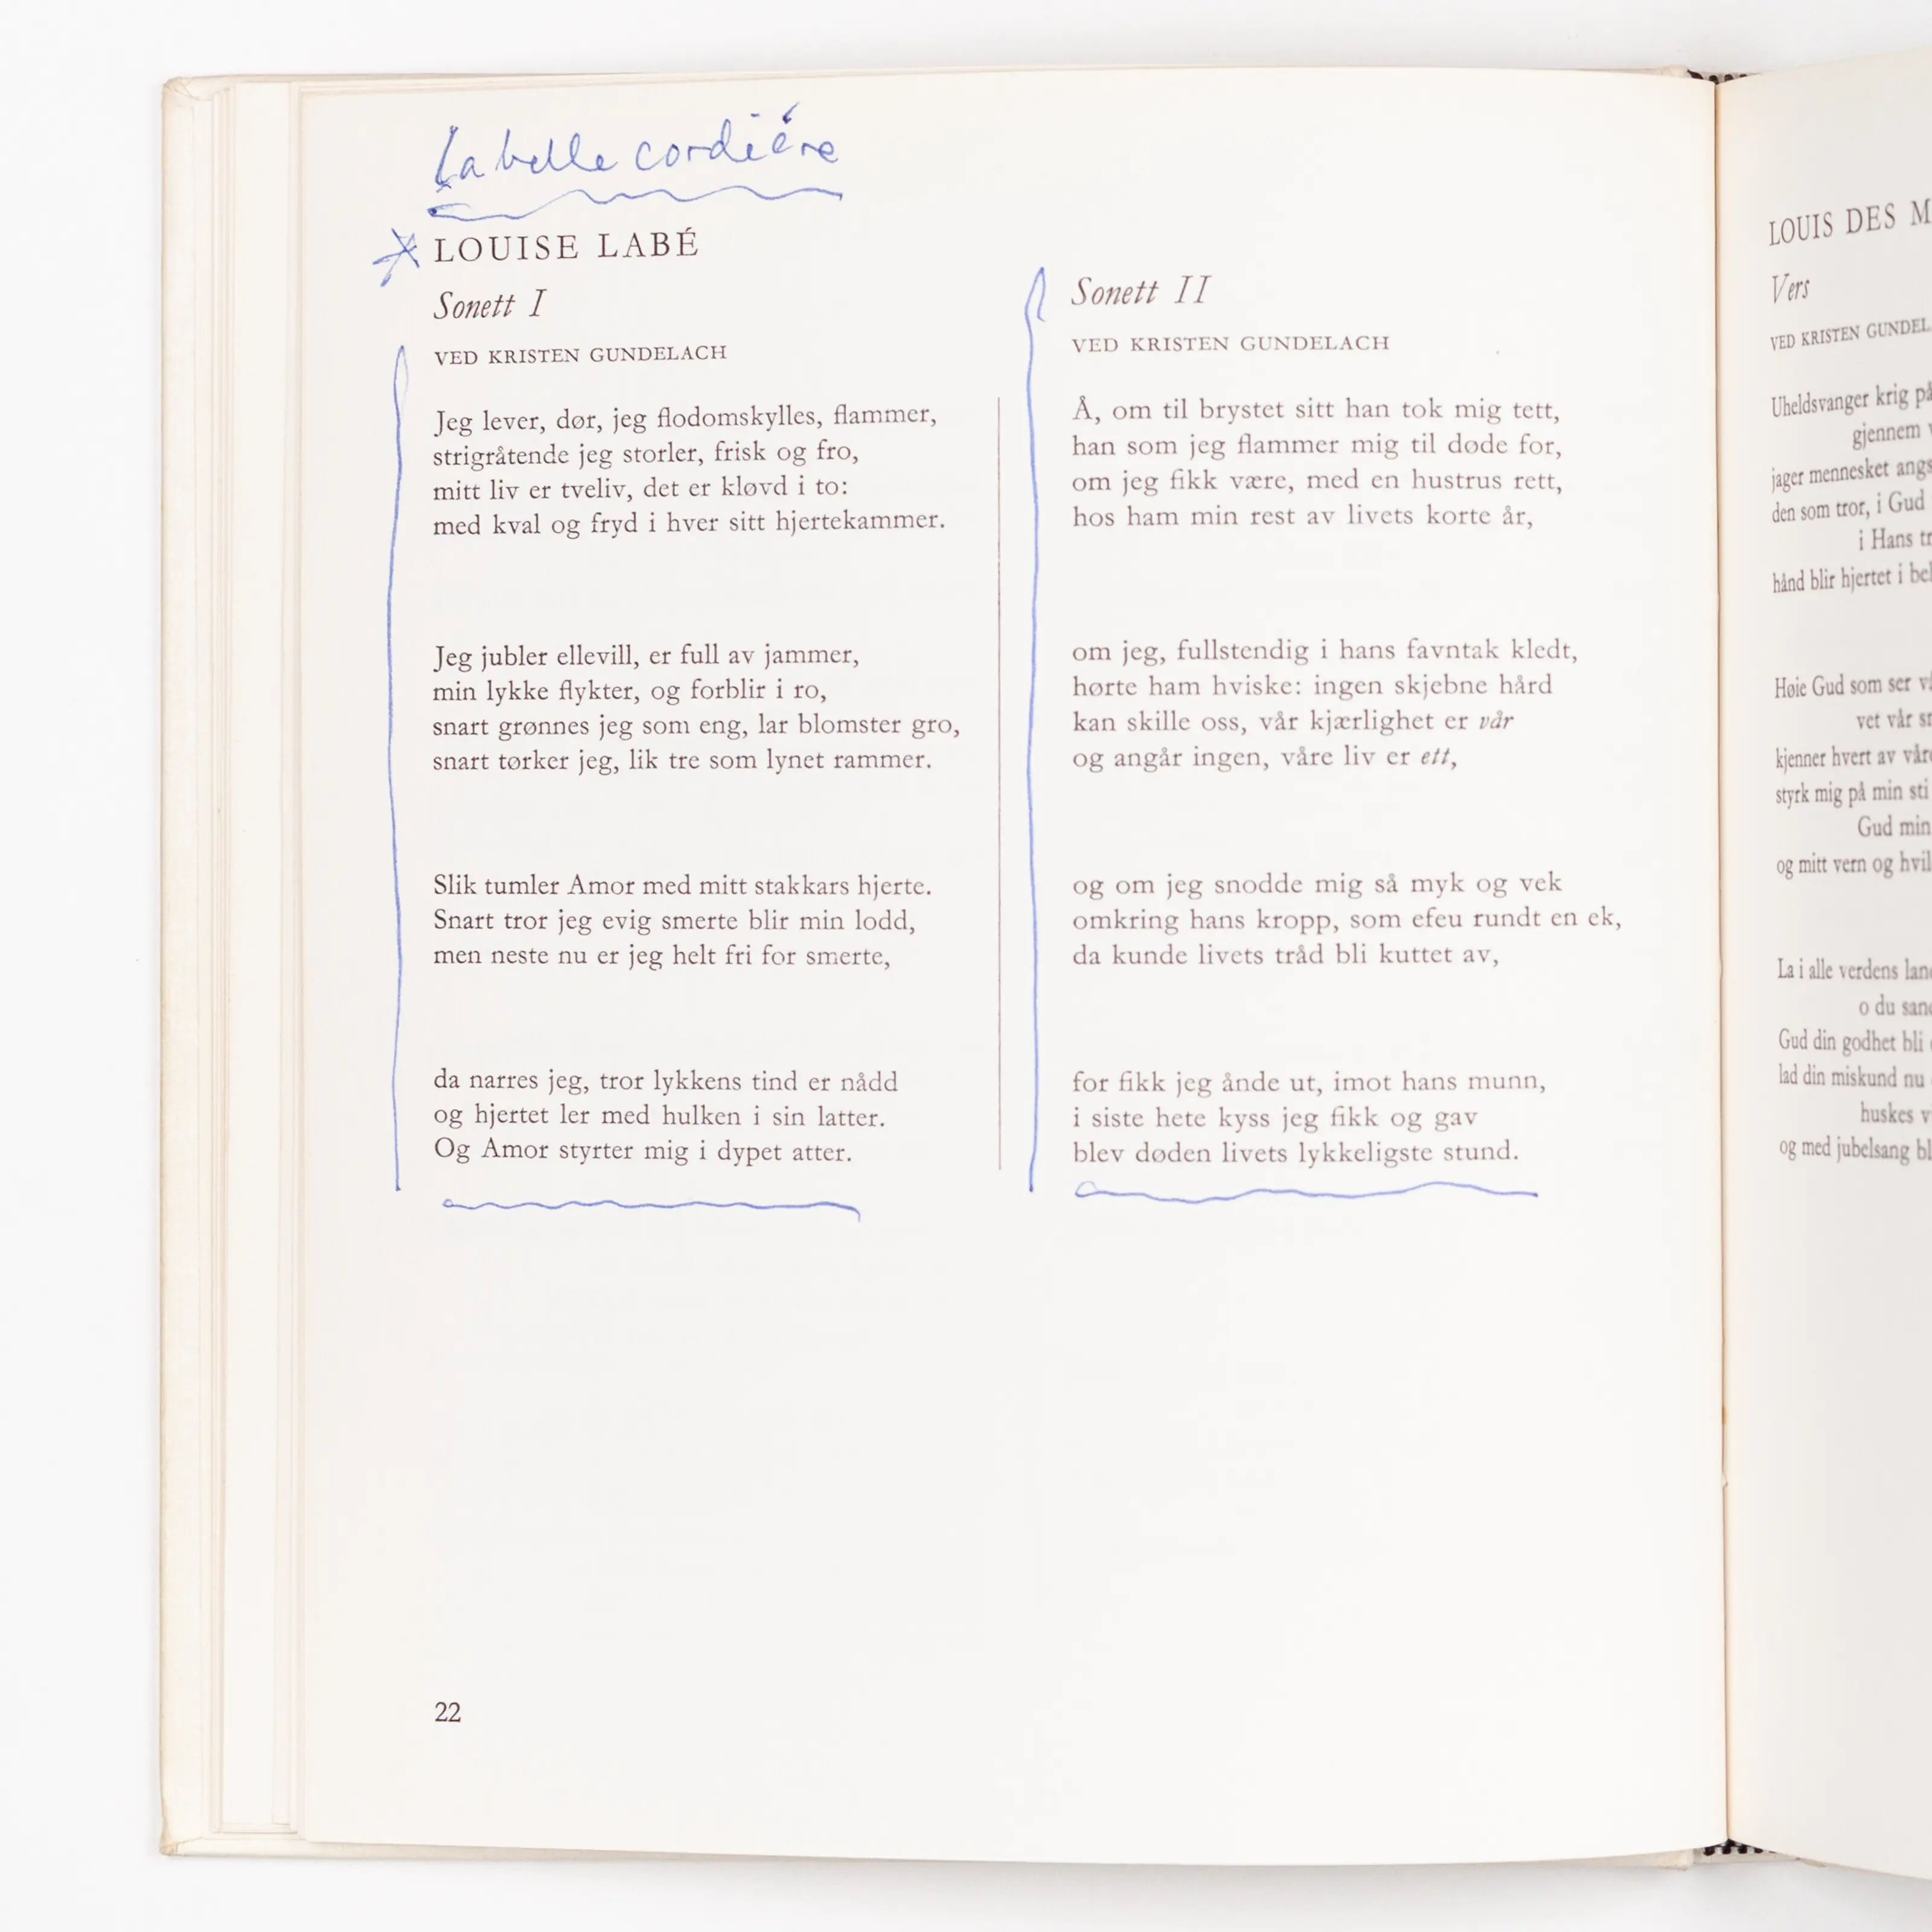 La belle cordière
LOUISE LABÉ
Sonett I
VED KRISTEN GUNDELACH
Jeg lever, dør, jeg flodomskylles, flammer,
strigråtende jeg storler, frisk og fro,
mitt liv er tveliv, det er kløvd i to:
med kval og fryd i hver sitt hjertekammer.
Jeg jubler ellevill, er full av jammer,
min lykke flykter, og forblir i ro,
snart grønnes jeg som eng, lar blomster gro,
snart tørker jeg, lik tre som lynet rammer.
Slik tumler Amor med mitt stakkars hjerte.
Snart tror jeg evig smerte blir min lodd,
men neste nu er jeg helt fri for smerte,
da narres jeg, tror lykkens tind er nådd
og hjertet ler med hulken i sin latter.
Og Amor styrter mig i dypet atter.
Sonett II
VED KRISTEN GUNDELACH
Å, om til brystet sitt han tok mig tett,
han som jeg flammer mig til døde for,
om jeg fikk være, med en hustrus rett,
hos ham min rest av livets korte år,
om jeg, fullstendig i hans favntak kledt,
hørte ham hviske: ingen skjebne hård
kan skille oss, vår kjærlighet er vår
og angår ingen, våre liv er ett,
og om jeg snodde mig så myk og vek
omkring hans kropp, som efeu rundt en ek,
da kunde livets tråd bli kuttet av,
for fikk jeg ånde ut, imot hans munn,
i siste hete kyss jeg fikk og gav
blev døden livets lykkeligste stund.
22
LOUIS DES
Vers
VED KRISTEN
Uheldsvanger krig på
gjennem
jager mennesket
den som tror, i Gud
i Hans
hånd blir hjertet i
Høie Gud som ser
vet vår
kjenner hvert av
styrk mig på min sti
Gud min
og mitt vern og
La i alle verdens
o du
Gud din godhet bli
lad din miskund nu
huskes
og med jubelsang